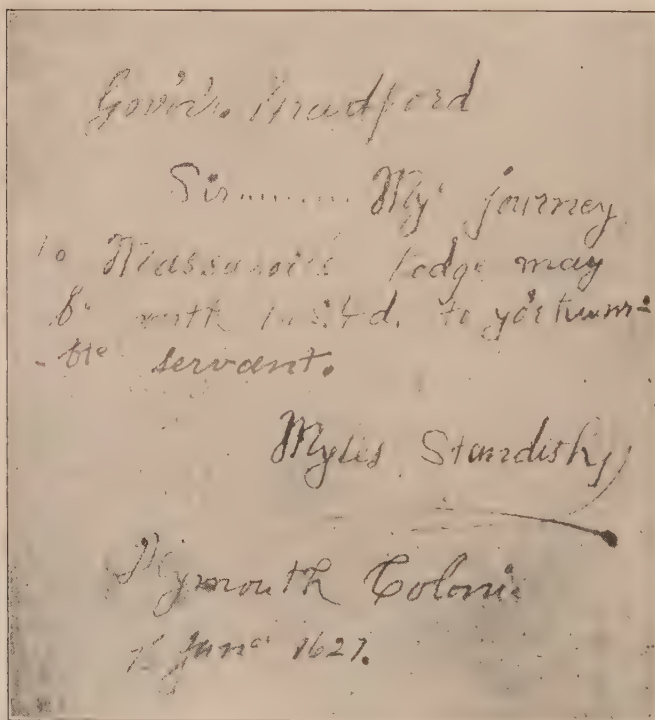 Gov'r. Bradford
Sir......... My journey
to Massasoits lodge may
be worth 10s.4d. to yor hum-
-ble servant.
Myles Standish
Plymouth Coloni
June 1627.